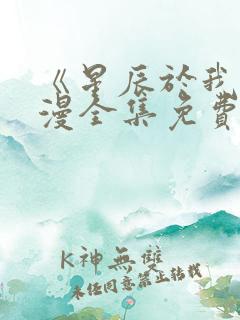 《星辰於我
漫全集免費
K神無雙
未经同意禁止转载